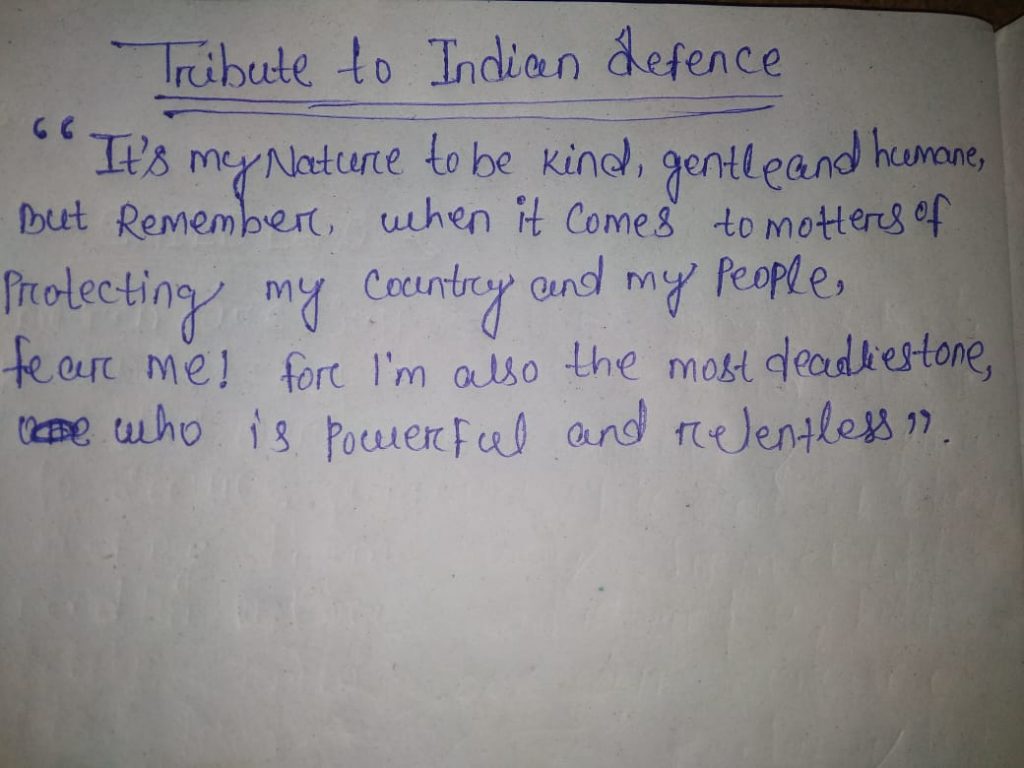 Tribute to Indian defence
“It's my Nature to be kind, gentle and humane,
But Remember, when it Comes to motters of
Protecting my Country and my People,
fear me! for I'm also the most deadliest one,
who is Powerful and relentless”.